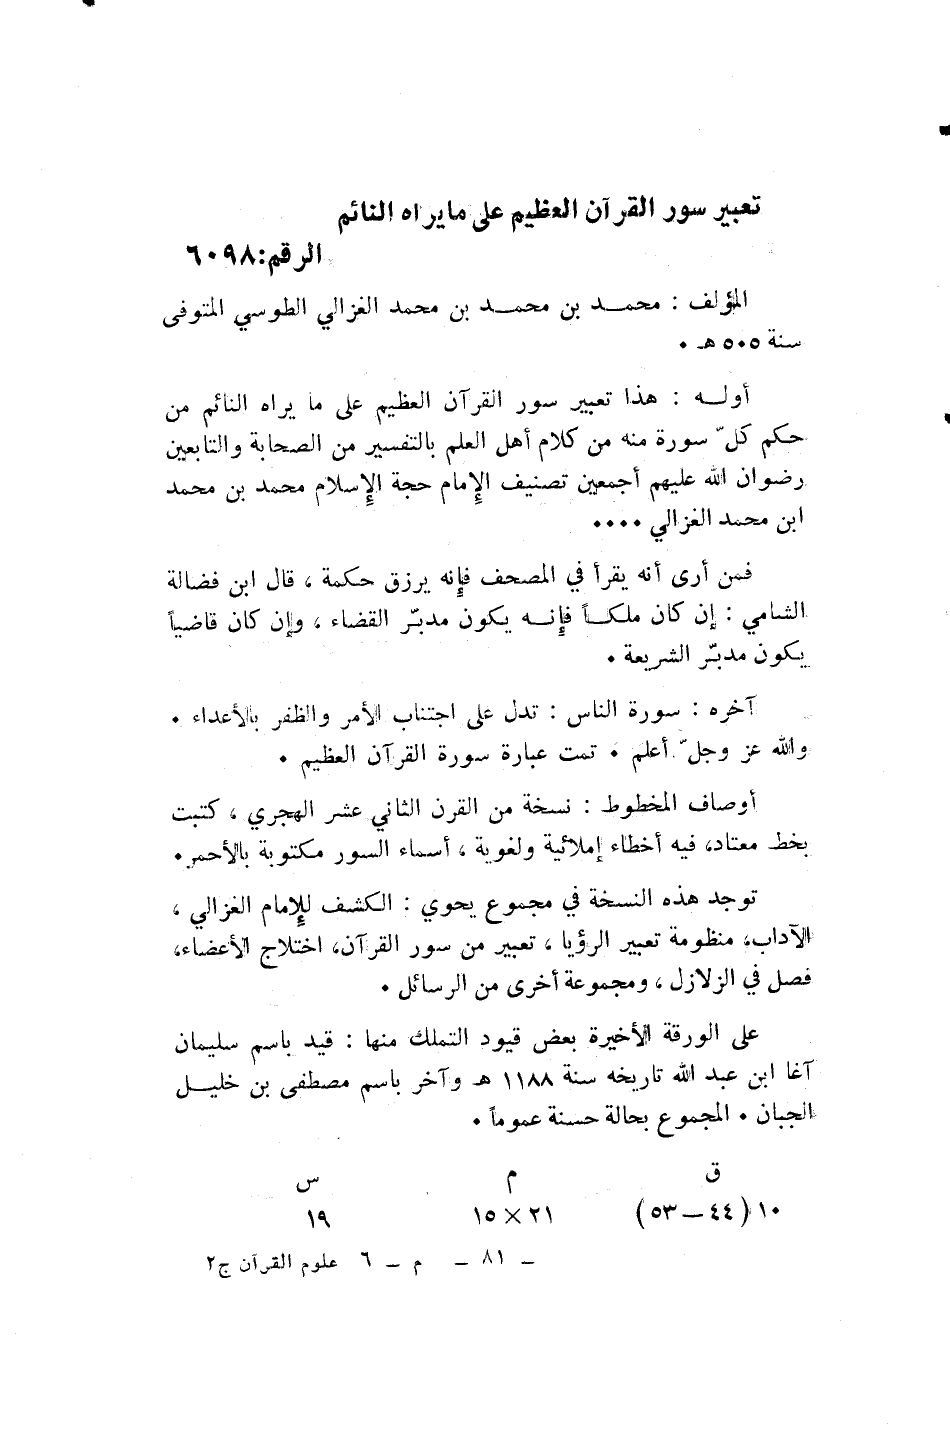 تعبير سور القرآن العظيم على مايراه النائم
الرقم: ٦٠٩٨
المؤلف : محمـــد بن محمـــد بن محمد الغزالي الطوسي المتوفى
سنة ٥٠٥ هـ ٠
أولـــه : هذا تعبير سور القرآن العظيم على ما يراه النائم من
حكم كلّ سورة منه من كلام أهل العلم بالتفسير من الصحابة والتابعين
رضوان الله عليهم أجمعين تصنيف الإمام حجة الإسلام محمد بن محمد
ابن محمد الغزالي ٠٠٠٠
فمن أرى أنه يقرأ في المصحف فإنه يرزق حكمة ، قال ابن فضالة
الشامي : إن كان ملكـــاً فإنـــه يكون مدبّر القضاء ، وإن كان قاضياً
يكون مدبّر الشريعة ٠
آخره : سورة الناس : تدل على اجتناب الأمر والظفر بالأعداء ٠
والله عز وجلّ أعلم ٠ تمت عبارة سورة القرآن العظيم ٠
أوصاف المخطوط : نسخة من القرن الثاني عشر الهجري ، كتبت
بخط معتاد، فيه أخطاء إملائية ولغوية ، أسماء السور مكتوبة بالأحمر ٠
توجد هذه النسخة في مجموع يحوي : الكشف للإمام الغزالي ،
الآداب، منظومة تعبير الرؤيا ، تعبير من سور القرآن، اختلاج الأعضاء،
فصل في الزلازل ، ومجموعة أخرى من الرسائل ٠
على الورقة الأخيرة بعض قيود التملك منها : قيد باسم سليمان
آغا ابن عبد الله تاريخه سنة ١١٨٨ هـ وآخر باسم مصطفى بن خليـــل
الجبان ٠ المجموع بحالة حسنة عموماً ٠
ق م س
١٠ (٤٤ – ٥٣) ٢١ × ١٥ ١٩
– ٨١ – م – ٦ علوم القرآن ج٢